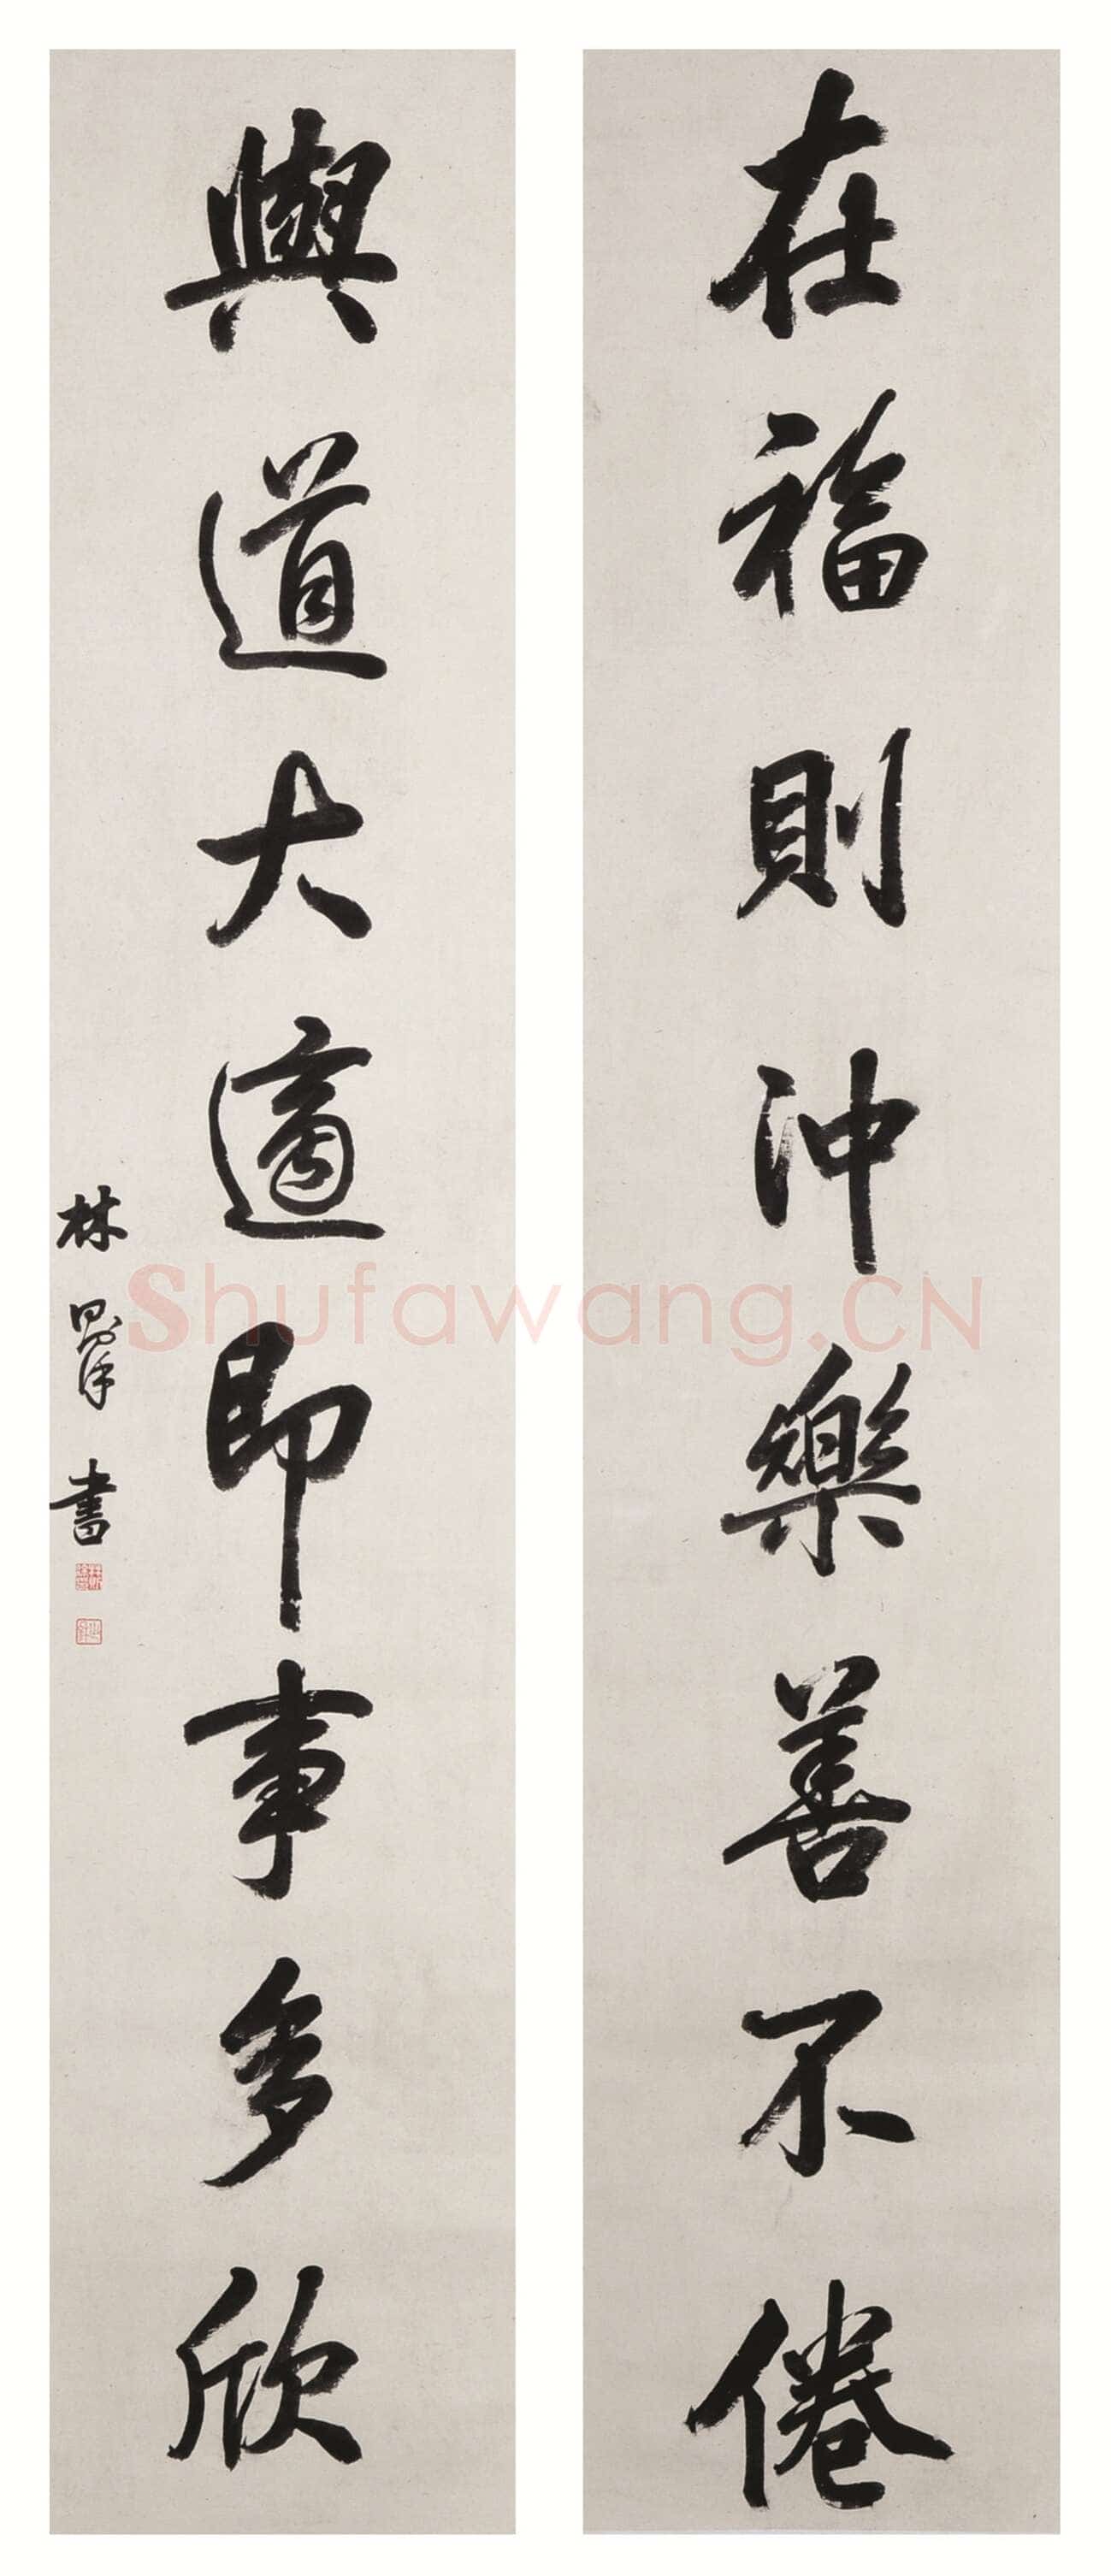 在福則沖樂善不倦
與道大適即事多欣
林則徐書
Shufawang.CN